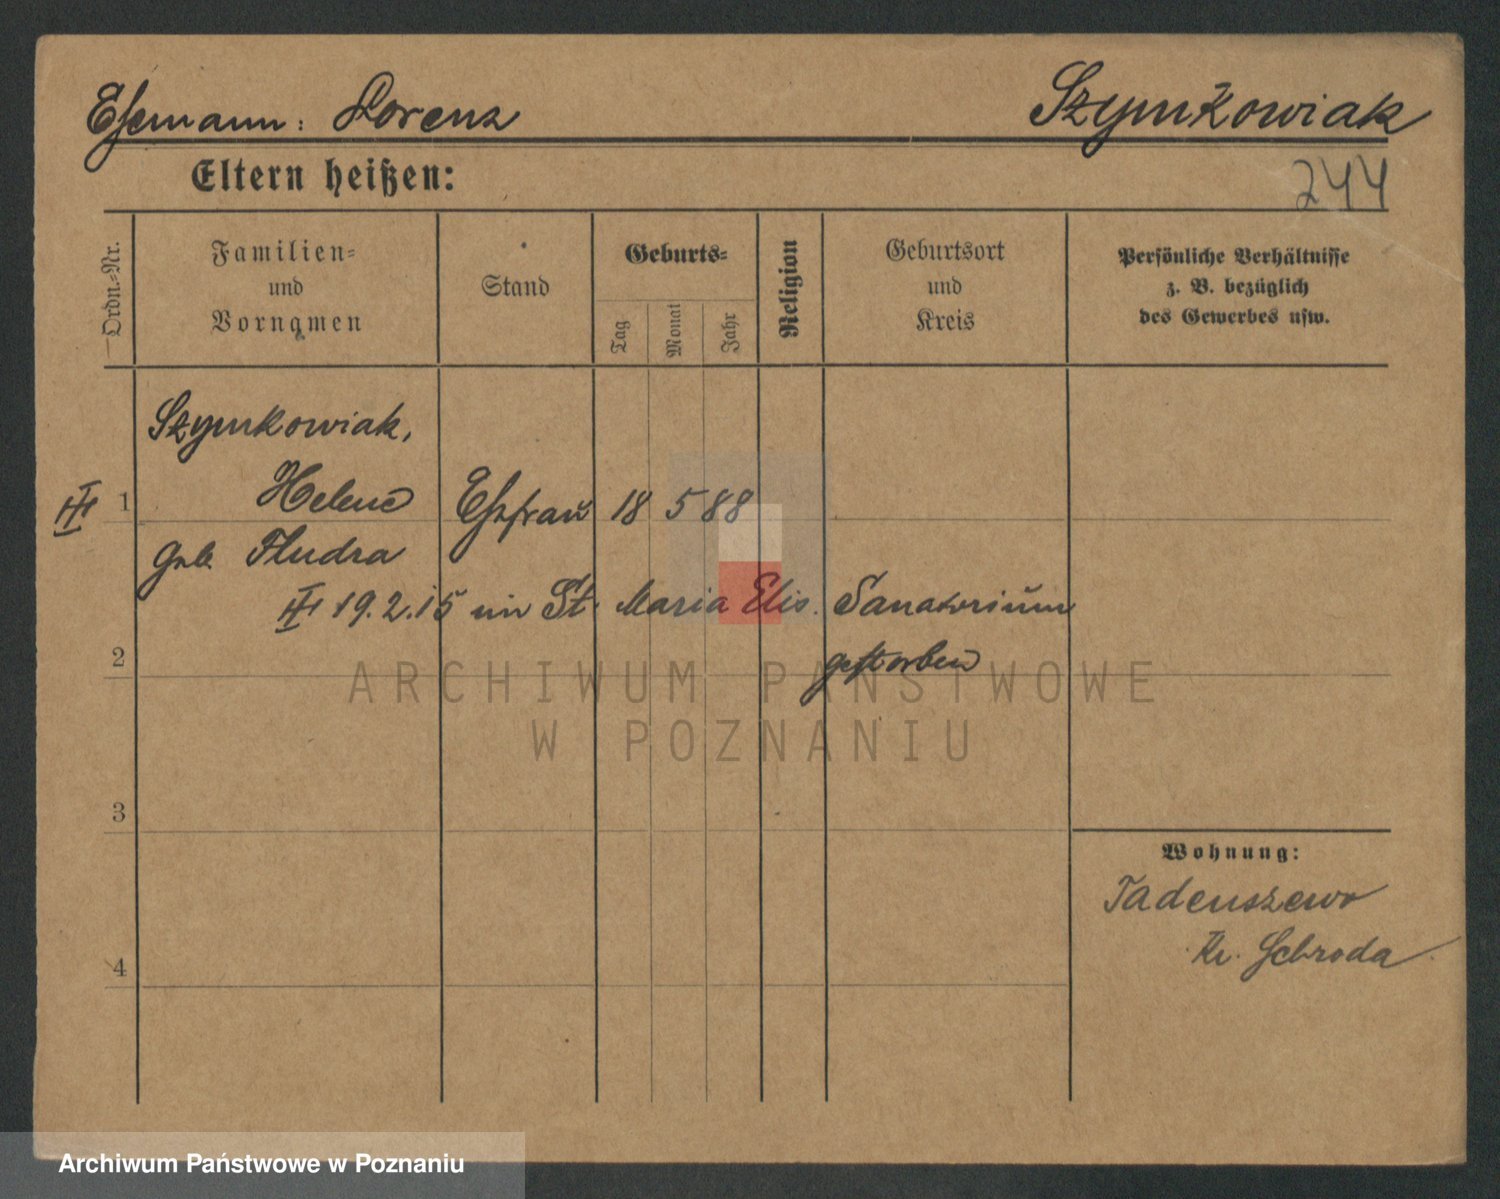 Ehemann: Lorenz
Szymkowiak
Eltern heißen:
244
Ordn.=Nr.
Familien=
und
Vornamen
Stand
Geburts=
Tag
Monat
Jahr
Religion
Geburtsort
und
Kreis
Persönliche Verhältnisse
z. B. bezüglich
des Gewerbes usw.
Szymkowiak,
1 Helene Ehefrau 18 5 88
geb. Fludra
19.2.15 im St. Maria Elis. Sanatorium
2 gestorben
ARCHIWUM PAŃSTWOWE
W POZNANIU
3
Wohnung:
Tadeuszewo
Kr. Schroda
4
Archiwum Państwowe w Poznaniu